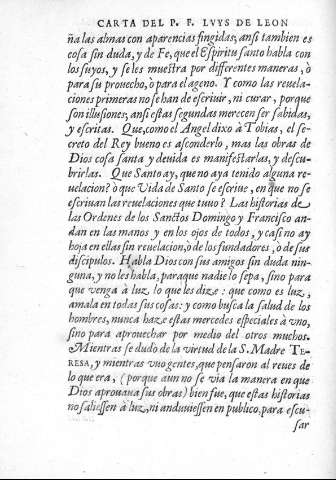 CARTA DEL P. F. LVYS DE LEON
ña las almas con aparencias fingidas, ansi tambien es
cosa sin duda, y de Fe, que el Espiritu santo habla con
los suyos, y se les muestra por differentes maneras, ò
para su prouecho, ò para el ageno. Y como las reuela-
ciones primeras no se han de escriuir, ni curar, porque
son illusiones, ansi estas segundas merecen ser sabidas,
y escritas. Que, como el Angel dixo à Tobias, el se-
creto del Rey bueno es asconderlo, mas las obras de
Dios cosa santa y deuida es manifestarlas, y descu-
brirlas. Que Santo ay, que no aya tenido alguna re-
uelacion? ò que Vida de Santo se escriue, en que no se
escriuan las reuelaciones que tuuo? Las historias de
las Ordenes de los Sanctos Domingo y Francisco an-
dan en las manos y en los ojos de todos, y casi no ay
hoja en ellas sin reuelacion, ò de los fundadores, ò de sus
discipulos. Habla Dios con sus amigos sin duda nin-
guna, y no les habla, paraque nadie lo sepa, sino para
que venga à luz lo que les dize: que como es luz,
amala en todas sus cosas: y como busca la salud de los
hombres, nunca haze estas mercedes especiales à vno,
sino para aprouechar por medio del otros muchos.
Mientras se dudo de la virtud de la S. Madre TE-
RESA, y mientras vuo gentes, que pensaron al reues de
lo que era, (porque aun no se via la manera en que
Dios aprouaua sus obras) bien fue, que estas historias
no saliessen à luz, ni anduuiessen en publico, para escu-
sar